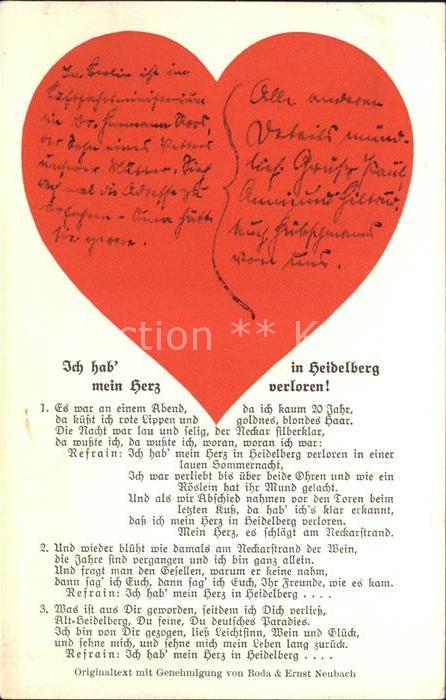 In Berlin ist im
Luftfahrtministerium
ein Dr. Hermann
der Sohn eines Vetters
unserer Mutter,
mal die Adresse zu
erfahren - Oma hätte
sie gerne.
Alle anderen
Details münd-
lich. Gruß Paul,
Anni und Hiltrud.
Auch
von uns.
ction ** K
Ich hab' in Heidelberg
mein Herz verloren!
1. Es war an einem Abend, da ich kaum 20 Jahr,
da küßt ich rote Lippen und goldnes, blondes Haar.
Die Nacht war lau und selig, der Neckar silberklar,
da wußte ich, da wußte ich, woran, woran ich war:
Refrain: Ich hab' mein Herz in Heidelberg verloren in einer
lauen Sommernacht,
Ich war verliebt bis über beide Ohren und wie ein
Röslein hat ihr Mund gelacht.
Und als wir Abschied nahmen vor den Toren beim
letzten Kuß, da hab' ich's klar erkannt,
daß ich mein Herz in Heidelberg verloren.
Mein Herz, es schlägt am Neckarstrand.
2. Und wieder blüht wie damals am Neckarstrand der Wein,
die Jahre sind vergangen und ich bin ganz allein.
Und fragt man den Gesellen, warum er keine nahm,
dann sag' ich Euch, dann sag' ich Euch, Ihr Freunde, wie es kam.
Refrain: Ich hab' mein Herz in Heidelberg . . . .
3. Was ist aus Dir geworden, seitdem ich Dich verließ,
Alt-Heidelberg, Du Feine, Du deutsches Paradies.
Ich bin von Dir gezogen, ließ Leichtsinn, Wein und Glück,
und sehne mich, und sehne mich mein Leben lang zurück.
Refrain: Ich hab' mein Herz in Heidelberg . . . .
Originaltext mit Genehmigung von Boda & Ernst Neubach